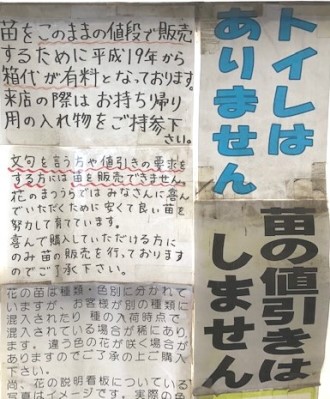 苗をこのままの値段で販売
するために平成19年から
箱代が有料となっております。
来店の際はお持ち帰り
用の入れ物をご持参下
さい。
文句を言う方や値引きの要求を
する方には苗を販売できません。
花のまつうらではみなさんに喜ん
でいただくために安くて良い苗を
努力して育てています。
喜んで購入していただける方に
のみ苗の販売を行っております
のでご了承下さい。
花の苗は種類・色別に分かれて
いますが、お客様が別の種類に
混入されたり 種の入荷時点で
混入されている場合が稀にあり
ます。違う色の花が咲く場合が
ありますのでご了承の上ご購入
下さい。
尚、花の説明看板についている
写真はイメージです。実際の色
トイレは
ありません
苗の値引きは
しません